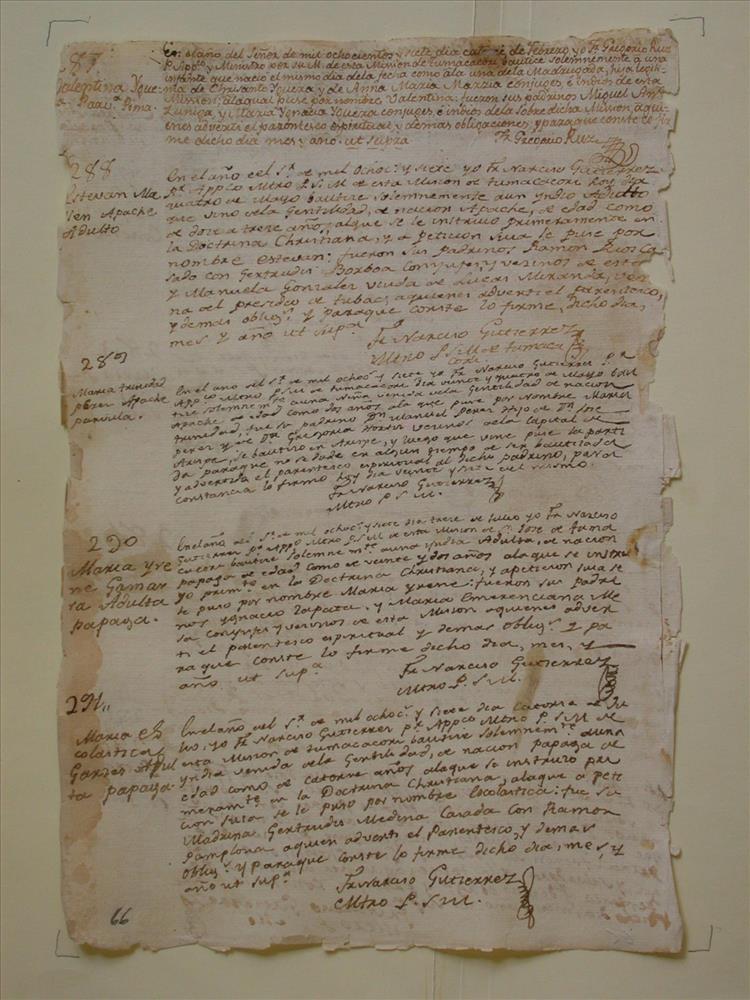 287
Valentina Yque
ra Parv.ª Pima.
En el año del Señor de mil ochocientos y siete dia catorse de Febrero, yo Fr. Gregorio Ruiz
P. App.co y Ministro por su M. de esta Mision de Tumacacori, bautice Solemnemente a una
infante que nacio el mismo dia de la fecha como a la una de la Madrugada, hija legiti-
ma de Chrisanto Yquera y de Anna Maria Marzia conjuges, è Indios de esta
Mission; a la qual puse por nombre, Valentina: fueron sus padrinos Miguel Ant.º
Zuñiga, y Maria Ygnazia Yquera conjuges, è indios de la sobre dicha Mision, a qui-
enes adverti el parentesco espiritual, y demas obligaciones, y para que conste lo fir-
me dicho dia mes, y año ut supra
Fr. Gregorio Ruiz
288
Estevan Ma
Apache
Adulto
En el año del S.r de mil ochoc.s y siete yo Fr. Narciso Gutierrez
P.r Appco Mtro P. S. M. de esta Mision de Tumacacori Hoy dia
quatro de Mayo bautise solemnemente a un yndio Adulto
que vino de la Gentilidad, de nacion Apache, de edad como
de dose a trese años, al que se le instruió primeramente en
la Doctrina Christiana, y a peticion suia se le puse por
nombre estevan: fueron sus padrinos Ramon Rios Ca-
sado con Gertrudis Borboa Conjuges, y vecinos de
y Manuela Gonzales viuda de Lucas Miranda, veci
na del presidio de Tubac, a quienes adverti el parentesco,
y demas oblig.s y para que conste lo firme, dicho dia,
mes y año ut sup.ª
Fr. Narciso Gutierrez
Mtro P. S. M. de Tumaca
cori
289
Maria trinidad
perez Apache
parvula.
En el año del S.r de mil ochoc.s y siete yo Fr. Narciso Gutierres P.r
Appco Mtro P. S. M. de Tumacacori dia veinte y quatro de Mayo bau
tise solemnem.te a una Niña venida de la Gentilidad de nacion
Apache de edad como dos años a la que puse por Nombre Maria
trinidad, fue su padrino Dn Manuel perez Hijo de Dn Jose
perez y de Dª Gregoria vecinos de la Capital de
Arispe, se bautiso en Arispe, y luego que vine puse la parti
da para que no se dude en algun tiempo de ser bautisada
y advertida el parentesco espiritual al dicho padrino, para
constancia lo firmo Hoy dia veinte y siete del mismo.
Fr. Narciso Gutierrez
Mtro P. S. M.
290
Maria yre
ne Gamar
ra Adulta
papaga.
En el año del S.r de mil ochoc.s y siete dia trese de Julio yo Fr. Narciso
Gutierrez P.r Appco Mtro P. S. M. de esta Mision de S. Jose de Tuma
cacori bautise solemnem.te a una yndia Adulta, de nacion
papaga de edad como de veinte y dos años a la que se instru
yo prim.te en la Doctrina Christiana, y a peticion suia se
le puso por nombre Maria yrene: fueron sus Padri
nos ygnacio Zapata, y Maria Emerenciana Me
sa Conjuges y vecinos de esta Mision a quienes adver
ti el parentesco espiritual y demas oblig.s y pa
ra que conste lo firme dicho dia, mes, y
año ut sup.ª
Fr. Narciso Gutierrez
Mtro P. S. M.
291
Maria Es
colastica
Garzes Adul
ta papaga.
En el año del S.r de mil ochoc.s y siete dia catorse de Ju
lio, yo Fr. Narciso Gutierrez P.r Appco Mtro P. S. M. de
esta Mision de Tumacacori bautise Solemnem.te a una
yndia venida de la Gentilidad, de nacion papaga de
edad como de catorse años, a la que se instruio pri
meram.te en la Doctrina Christiana, a la que a peti
cion suia se le puso por nombre Escolastica: fue su
Madrina Gertrudis Medina Casada con Ramon
Pamplona a quien adverti el Parentesco, y demas
oblig.s y para que conste lo firme dicho dia, mes, y
año ut sup.ª
Fr. Narciso Gutierrez
Mtro P. S. M.
66